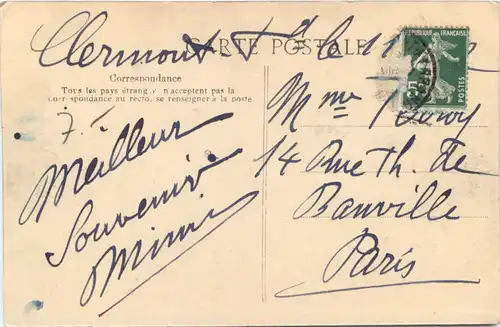 Clermont Fd le 11
CARTE POSTALE
RÉPUBLIQUE FRANÇAISE
POSTES
Correspondance
Tous les pays étrangers n'acceptent pas la
correspondance au recto, se renseigner à la poste
Meilleur
Souvenir
Mimi
Mme
14 Rue Th. de
Banville
Paris